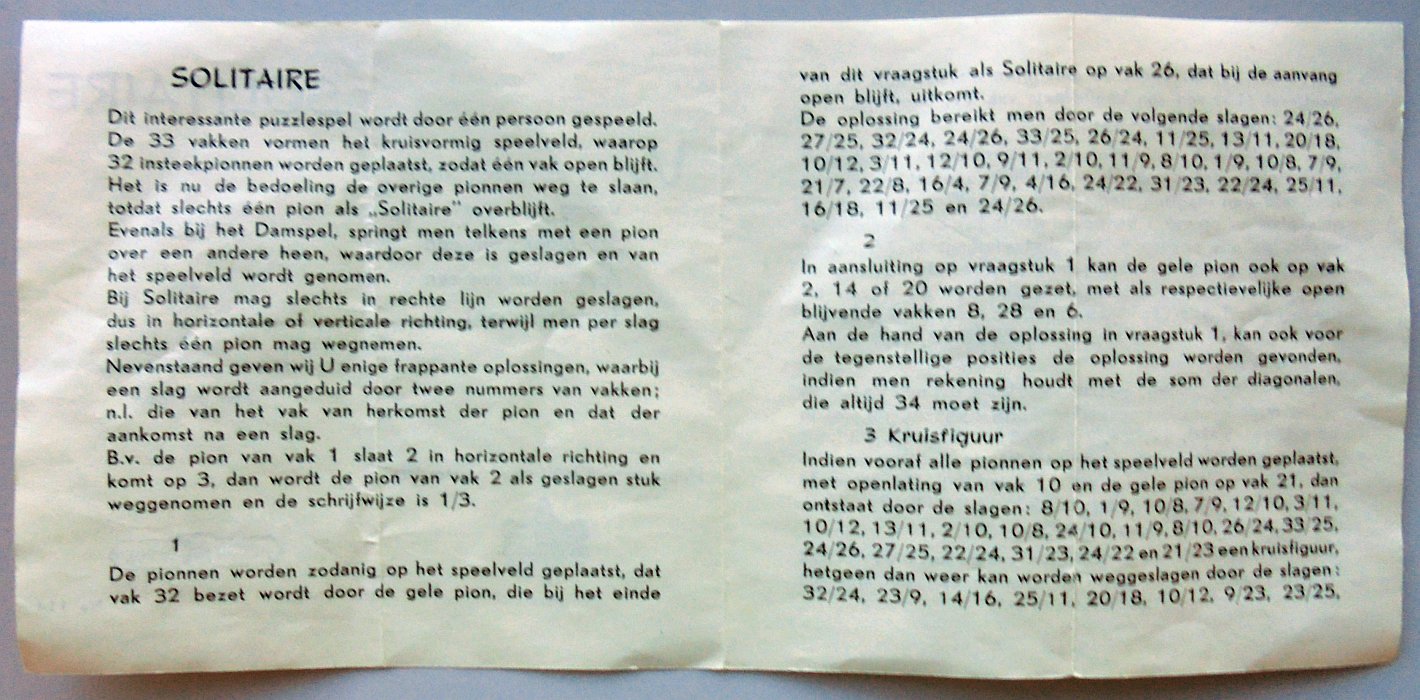 SOLITAIRE
Dit interessante puzzlespel wordt door één persoon gespeeld.
De 33 vakken vormen het kruisvormig speelveld, waarop
32 insteekpionnen worden geplaatst, zodat één vak open blijft.
Het is nu de bedoeling de overige pionnen weg te slaan,
totdat slechts één pion als „Solitaire" overblijft.
Evenals bij het Damspel, springt men telkens met een pion
over een andere heen, waardoor deze is geslagen en van
het speelveld wordt genomen.
Bij Solitaire mag slechts in rechte lijn worden geslagen,
dus in horizontale of verticale richting, terwijl men per slag
slechts één pion mag wegnemen.
Nevenstaand geven wij U enige frappante oplossingen, waarbij
een slag wordt aangeduid door twee nummers van vakken;
n.l. die van het vak van herkomst der pion en dat der
aankomst na een slag.
B.v. de pion van vak 1 slaat 2 in horizontale richting en
komt op 3, dan wordt de pion van vak 2 als geslagen stuk
weggenomen en de schrijfwijze is 1/3.
1
De pionnen worden zodanig op het speelveld geplaatst, dat
vak 32 bezet wordt door de gele pion, die bij het einde
van dit vraagstuk als Solitaire op vak 26, dat bij de aanvang
open blijft, uitkomt.
De oplossing bereikt men door de volgende slagen: 24/26,
27/25, 32/24, 24/26, 33/25, 26/24, 11/25, 13/11, 20/18,
10/12, 3/11, 12/10, 9/11, 2/10, 11/9, 8/10, 1/9, 10/8, 7/9,
21/7, 22/8, 16/4, 7/9, 4/16, 24/22, 31/23, 22/24, 25/11,
16/18, 11/25 en 24/26.
2
In aansluiting op vraagstuk 1 kan de gele pion ook op vak
2, 14 of 20 worden gezet, met als respectievelijke open
blijvende vakken 8, 28 en 6.
Aan de hand van de oplossing in vraagstuk 1, kan ook voor
de tegenstellige posities de oplossing worden gevonden,
indien men rekening houdt met de som der diagonalen,
die altijd 34 moet zijn.
3 Kruisfiguur
Indien vooraf alle pionnen op het speelveld worden geplaatst,
met openlating van vak 10 en de gele pion op vak 21, dan
ontstaat door de slagen: 8/10, 1/9, 10/8, 7/9, 12/10, 3/11,
10/12, 13/11, 2/10, 10/8, 24/10, 11/9, 8/10, 26/24, 33/25,
24/26, 27/25, 22/24, 31/23, 24/22 en 21/23 een kruisfiguur,
hetgeen dan weer kan worden weggeslagen door de slagen:
32/24, 23/9, 14/16, 25/11, 20/18, 10/12, 9/23, 23/25,